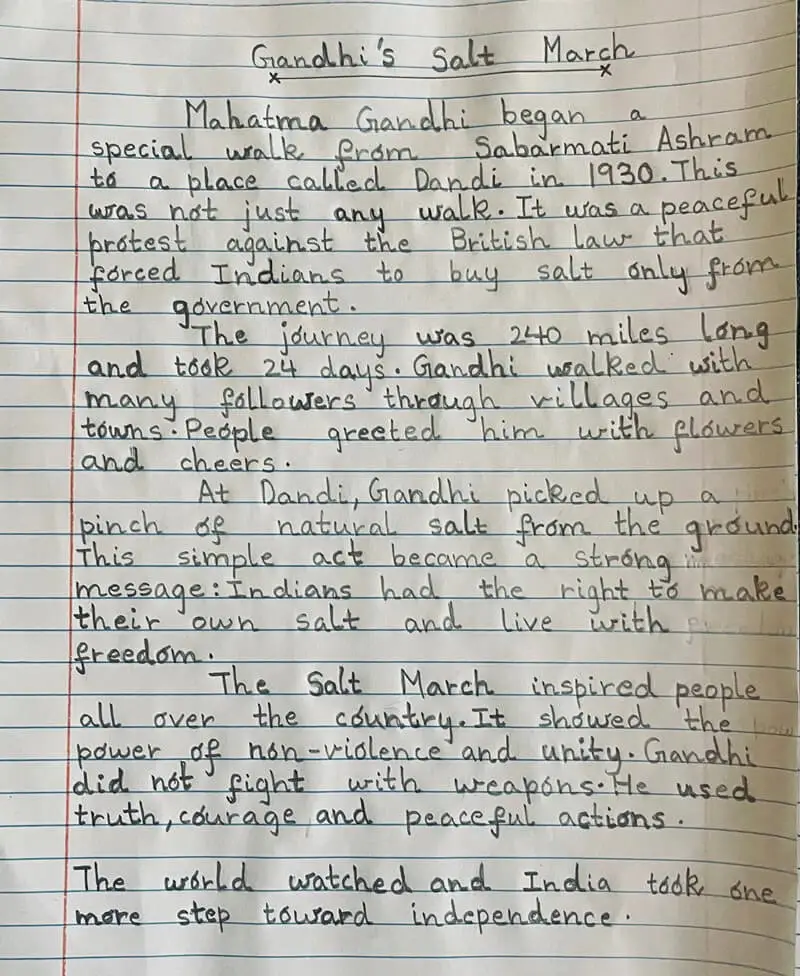 Gandhi's Salt March
Mahatma Gandhi began a
special walk from Sabarmati Ashram
to a place called Dandi in 1930. This
was not just any walk. It was a peaceful
protest against the British law that
forced Indians to buy salt only from
the government.
The journey was 240 miles long
and took 24 days. Gandhi walked with
many followers through villages and
towns. People greeted him with flowers
and cheers.
At Dandi, Gandhi picked up a
pinch of natural salt from the ground.
This simple act became a strong
message: Indians had the right to make
their own salt and live with
freedom.
The Salt March inspired people
all over the country. It showed the
power of non-violence and unity. Gandhi
did not fight with weapons. He used
truth, courage and peaceful actions.
The world watched and India took one
more step toward independence.